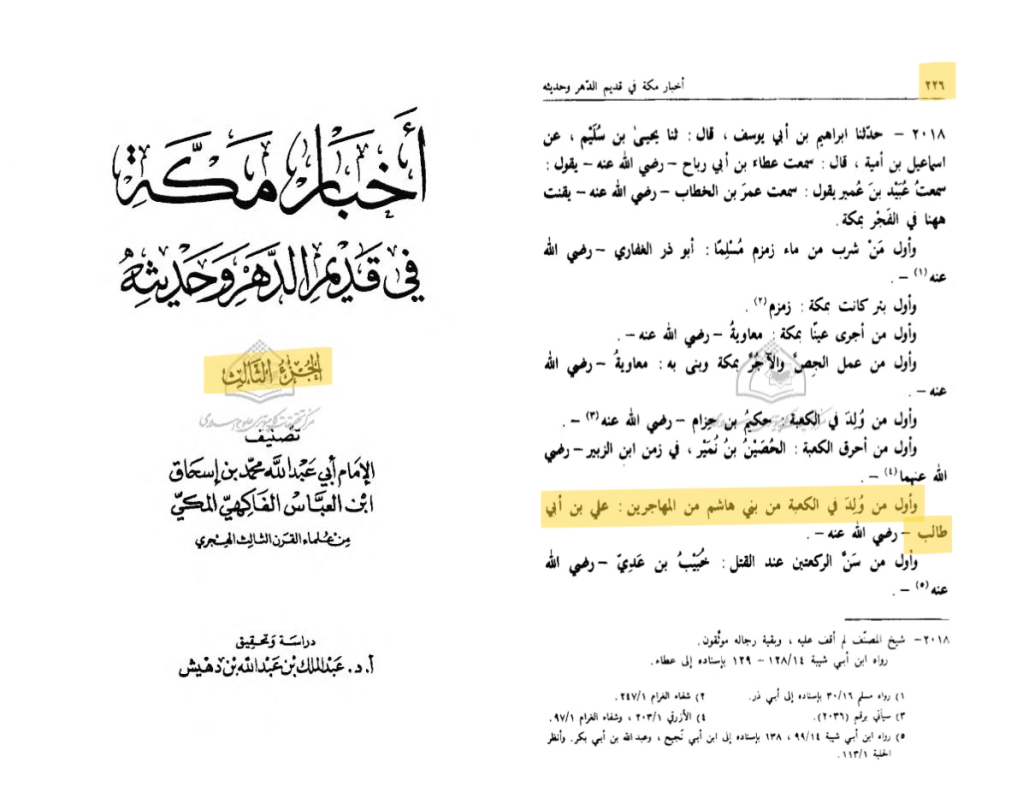 أخبار مكة
في قديم الدهر وحديثه
الجزء الثالث
تصنيف
الإمام أبي عبد الله محمد بن إسحاق
ابن العباس الفاكهي المكي
من علماء القرن الثالث الهجري
دراسة وتحقيق
أ. د. عبد الملك بن عبد الله بن دهيش
٢٢٦ أخبار مكة في قديم الدهر وحديثه
٢٠١٨ – حدّثنا ابراهيم بن أبي يوسف ، قال : ثنا يحيىٰ بن سُلَيْم ، عن
اسماعيل بن أمية ، قال : سمعت عطاء بن أبي رباح – رضي الله عنه – يقول :
سمعتُ عُبَيْد بنَ عُمير يقول : سمعت عمرَ بن الخطاب – رضي الله عنه – يقنت
ههنا في الفَجْر بمكة .
وأول مَنْ شرب من ماء زمزم مُسْلِمًا : أبو ذر الغفاري – رضي الله
عنه (١) – .
وأول بئر كانت بمكة : زمزم (٢) .
وأول من أجرى عينًا بمكة : معاويةُ – رضي الله عنه – .
وأول من عمل الجِصَّ والآجُرَّ بمكة وبنى به : معاويةُ – رضي الله
عنه – .
وأول من وُلِدَ في الكعبة : حكيمُ بن حِزام – رضي الله عنه (٣) – .
وأول من أحرق الكعبة : الحُصَيْنُ بنُ نُمَيْر ، في زمن ابنِ الزبير – رضي
الله عنهما (٤) – .
وأول من وُلِدَ في الكعبة من بني هاشم من المهاجرين : علي بن أبي
طالب – رضي الله عنه – .
وأول من سَنَّ الركعتين عند القتل : خُبَيْبُ بن عَدِيّ – رضي الله
عنه (٥) – .
٢٠١٨ – شيخ المصنّف لم أقف عليه ، وبقية رجاله موثّقون .
رواه ابن أبي شيبة ١٢٨/١٤ – ١٢٩ بإسناده إلى عطاء .
١) رواه مسلم ٣٠/١٦ بإسناده إلى أبي ذر . ٢) شفاء الغرام ٢٤٧/١ .
٣) سيأتي برقم (٢٠٣٦) . ٤) الأزرقي ٢٠٣/١ ، وشفاء الغرام ٩٧/١ .
٥) رواه ابن أبي شيبة ٩٩/١٤ ، ١٣٨ بإسناده إلى ابن أبي نُجيح ، وعبد الله بن أبي بكر . وأنظر
الحلية ١١٣/١ .